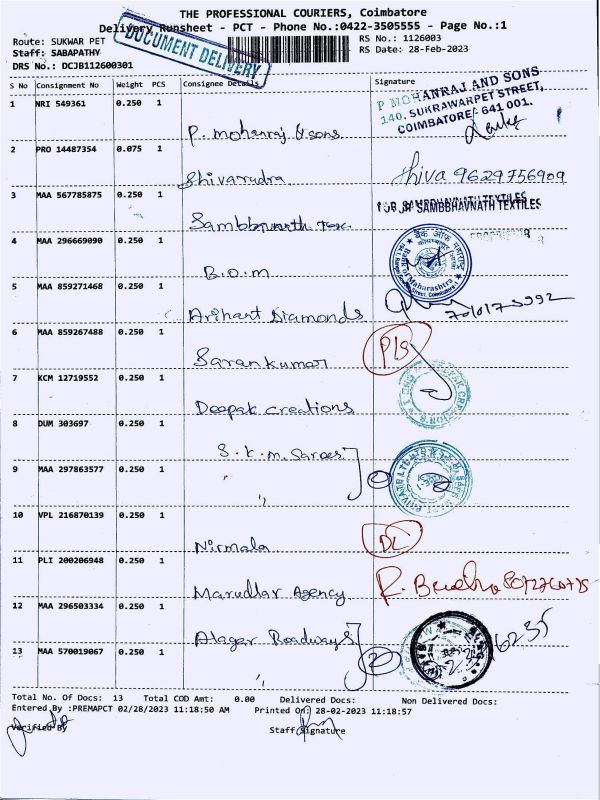 THE PROFESSIONAL COURIERS, Coimbatore
Delivery Runsheet - PCT - Phone No.:0422-3505555 - Page No.:1
Route: SUKWAR PET
RS No.: 1126003
Staff: SABAPATHY
RS Date: 28-Feb-2023
DRS No.: DCJB112600301
DOCUMENT DELIVERY
S No Consignment No Weight PCS Consignee Details Signature
1 NRI 549361 0.250 1 P. Mohanraj & sons
P MOHANRAJ AND SONS
140, SUKRAWARPET STREET,
COIMBATORE - 641 001.
2 PRO 14487354 0.075 1 Shivarudra Shiva 9629756909
3 MAA 567785875 0.250 1 Sambbavnath Tex
SAMBBHAVNATH TEXTILES
4 MAA 296669090 0.250 1 B.O.M
Bank of Maharashtra
5 MAA 859271468 0.250 1 Arihant Diamonds
6 MAA 859267488 0.250 1 Sarankumar
7 KCM 12719552 0.250 1 Deepak creations
8 DUM 303697 0.250 1 S.K.M. Sarees
9 MAA 297863577 0.250 1 " "
10 VPL 216870139 0.250 1 Nirmala DL
11 PLI 200206948 0.250 1 Marudhar Agency
12 MAA 296503334 0.250 1 Alagar Roadways
13 MAA 570019067 0.250 1 " 2
Total No. Of Docs: 13 Total COD Amt: 0.00 Delivered Docs: Non Delivered Docs:
Entered By :PREMAPCT 02/28/2023 11:18:50 AM Printed On: 28-02-2023 11:18:57
Verified By Staff Signature